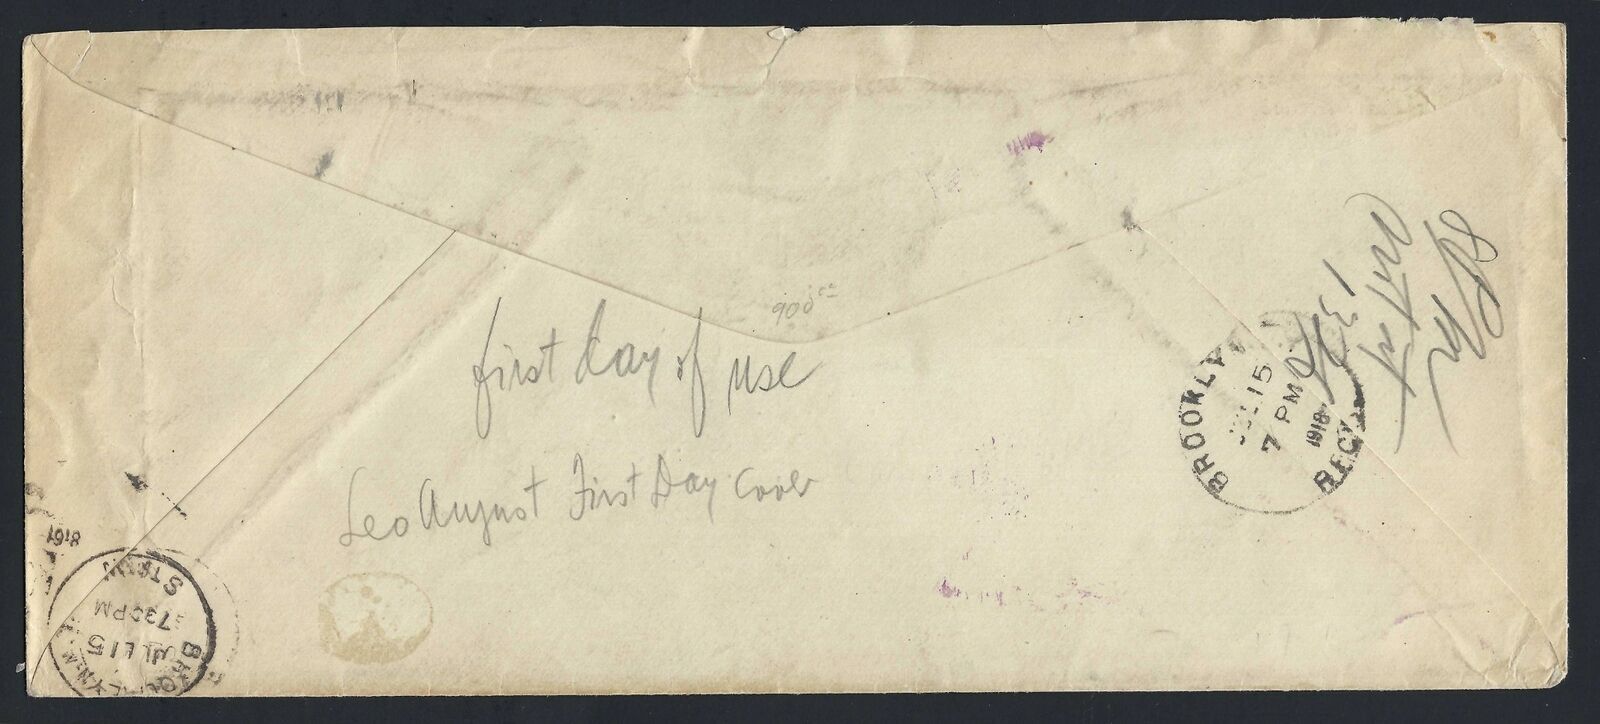 900⁰⁰
first day of use
Leo August First Day Cover
BROOKLYN
JUL 15
7 PM
1918
REC'D
1918
BROOKLYN N.Y.
JUL 15
730PM
STA.